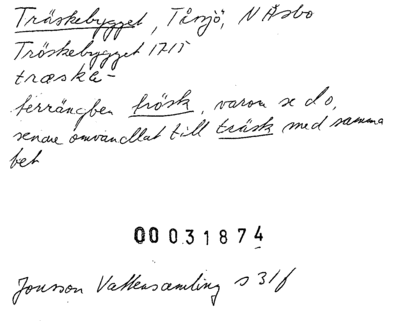 Träskebygget, Tåsjö, N Åsbo
Tröskebygget 1715
træske-
terrängben frösk, varom se do,
senare omvandlat till träsk med samma
bet
00031874
Jonsson Vattensamling s 31f